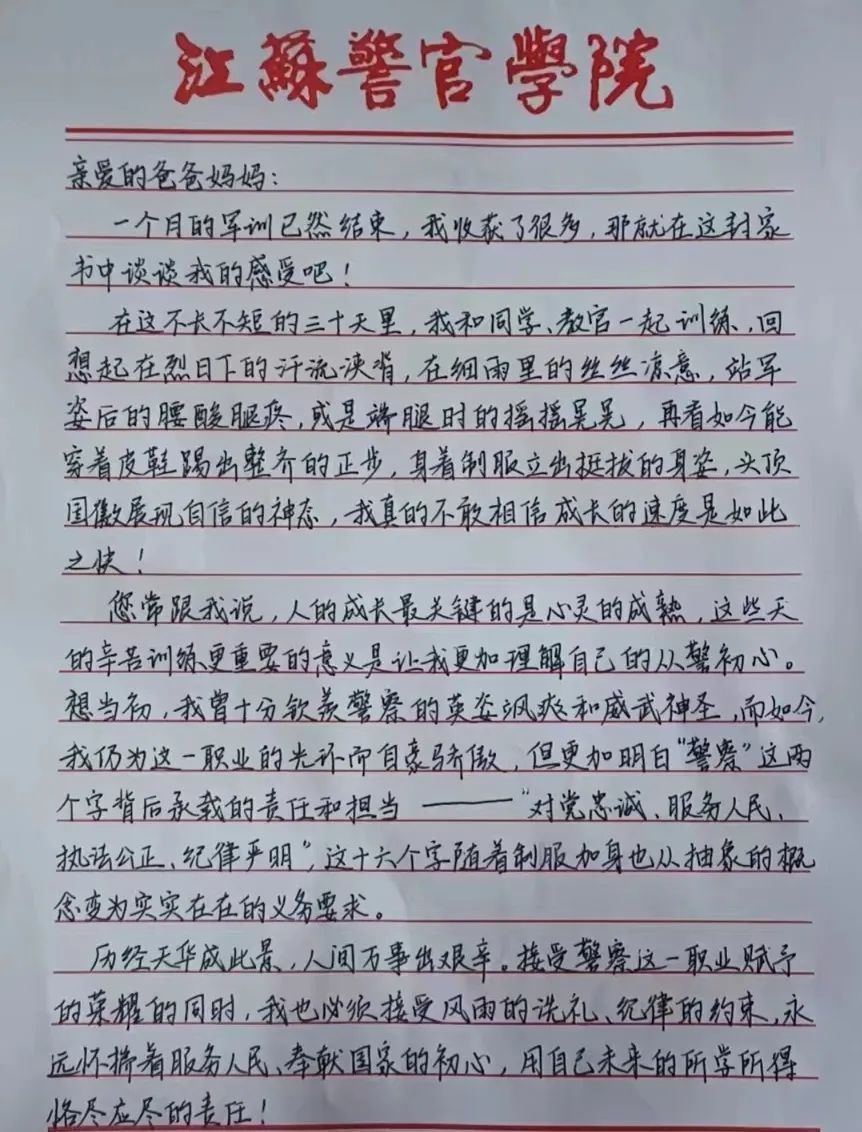 江蘇警官學院
亲爱的爸爸妈妈：
一个月的军训已然结束，我收获了很多，那就在这封家
书中谈谈我的感受吧！
在这不长不短的三十天里，我和同学、教官一起训练，回
想起在烈日下的汗流浃背，在细雨里的丝丝凉意，站军
姿后的腰酸腿疼，或是端腿时的摇摇晃晃，再看如今能
穿着皮鞋踢出整齐的正步，身着制服立出挺拔的身姿，头顶
国徽展现自信的神态，我真的不敢相信成长的速度是如此
之快！
您常跟我说，人的成长最关键的是心灵的成熟，这些天
的辛苦训练更重要的意义是让我更加理解自己的从警初心。
想当初，我曾十分钦羡警察的英姿飒爽和威武神圣，而如今，
我仍为这一职业的光环而自豪骄傲，但更加明白“警察”这两
个字背后承载的责任和担当——“对党忠诚、服务人民、
执法公正、纪律严明”，这十六个字随着制服加身也从抽象的概
念变为实实在在的义务要求。
历经天华成此景，人间万事出艰辛。接受警察这一职业赋予
的荣耀的同时，我也必须接受风雨的洗礼、纪律的约束，永
远怀揣着服务人民、奉献国家的初心，用自己未来的所学所得
恪尽应尽的责任！